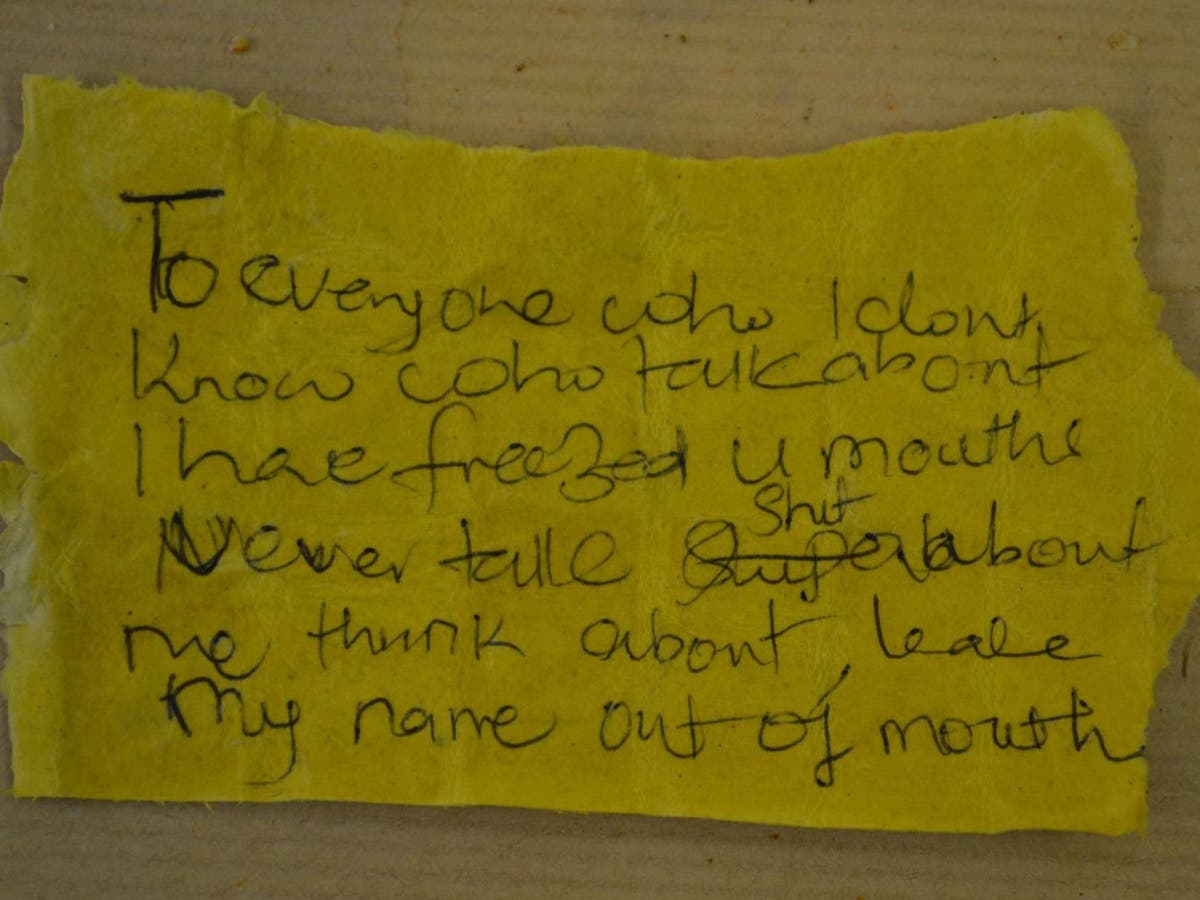 To everyone who I dont
Know who talk about
I have freezed u mouths
Never talk Shit about
me think about, leave
My name out of mouth